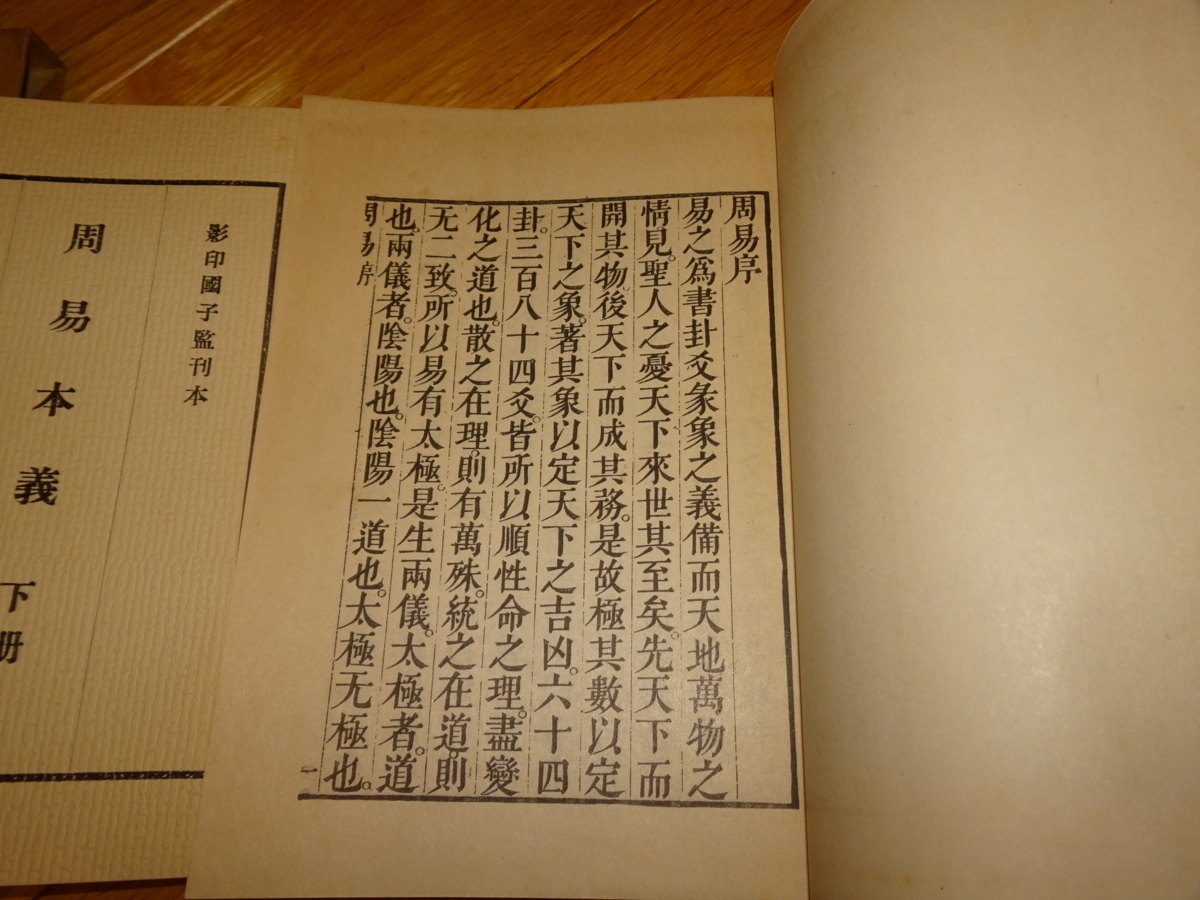 周易序
易之為書卦爻彖象之義備而天地萬物之
情見。聖人之憂天下來世其至矣。先天下而
開其物。後天下而成其務。是故極其數以定
天下之象。著其象以定天下之吉凶。六十四
卦。三百八十四爻。皆所以順性命之理。盡變
化之道也。散之在理。則有萬殊。統之在道。則
无二致。所以易有太極。是生兩儀。太極者。道
也。兩儀者。陰陽也。陰陽一道也。太極无極也。
周易序
一
影印國子監刊本
周易本義
下册